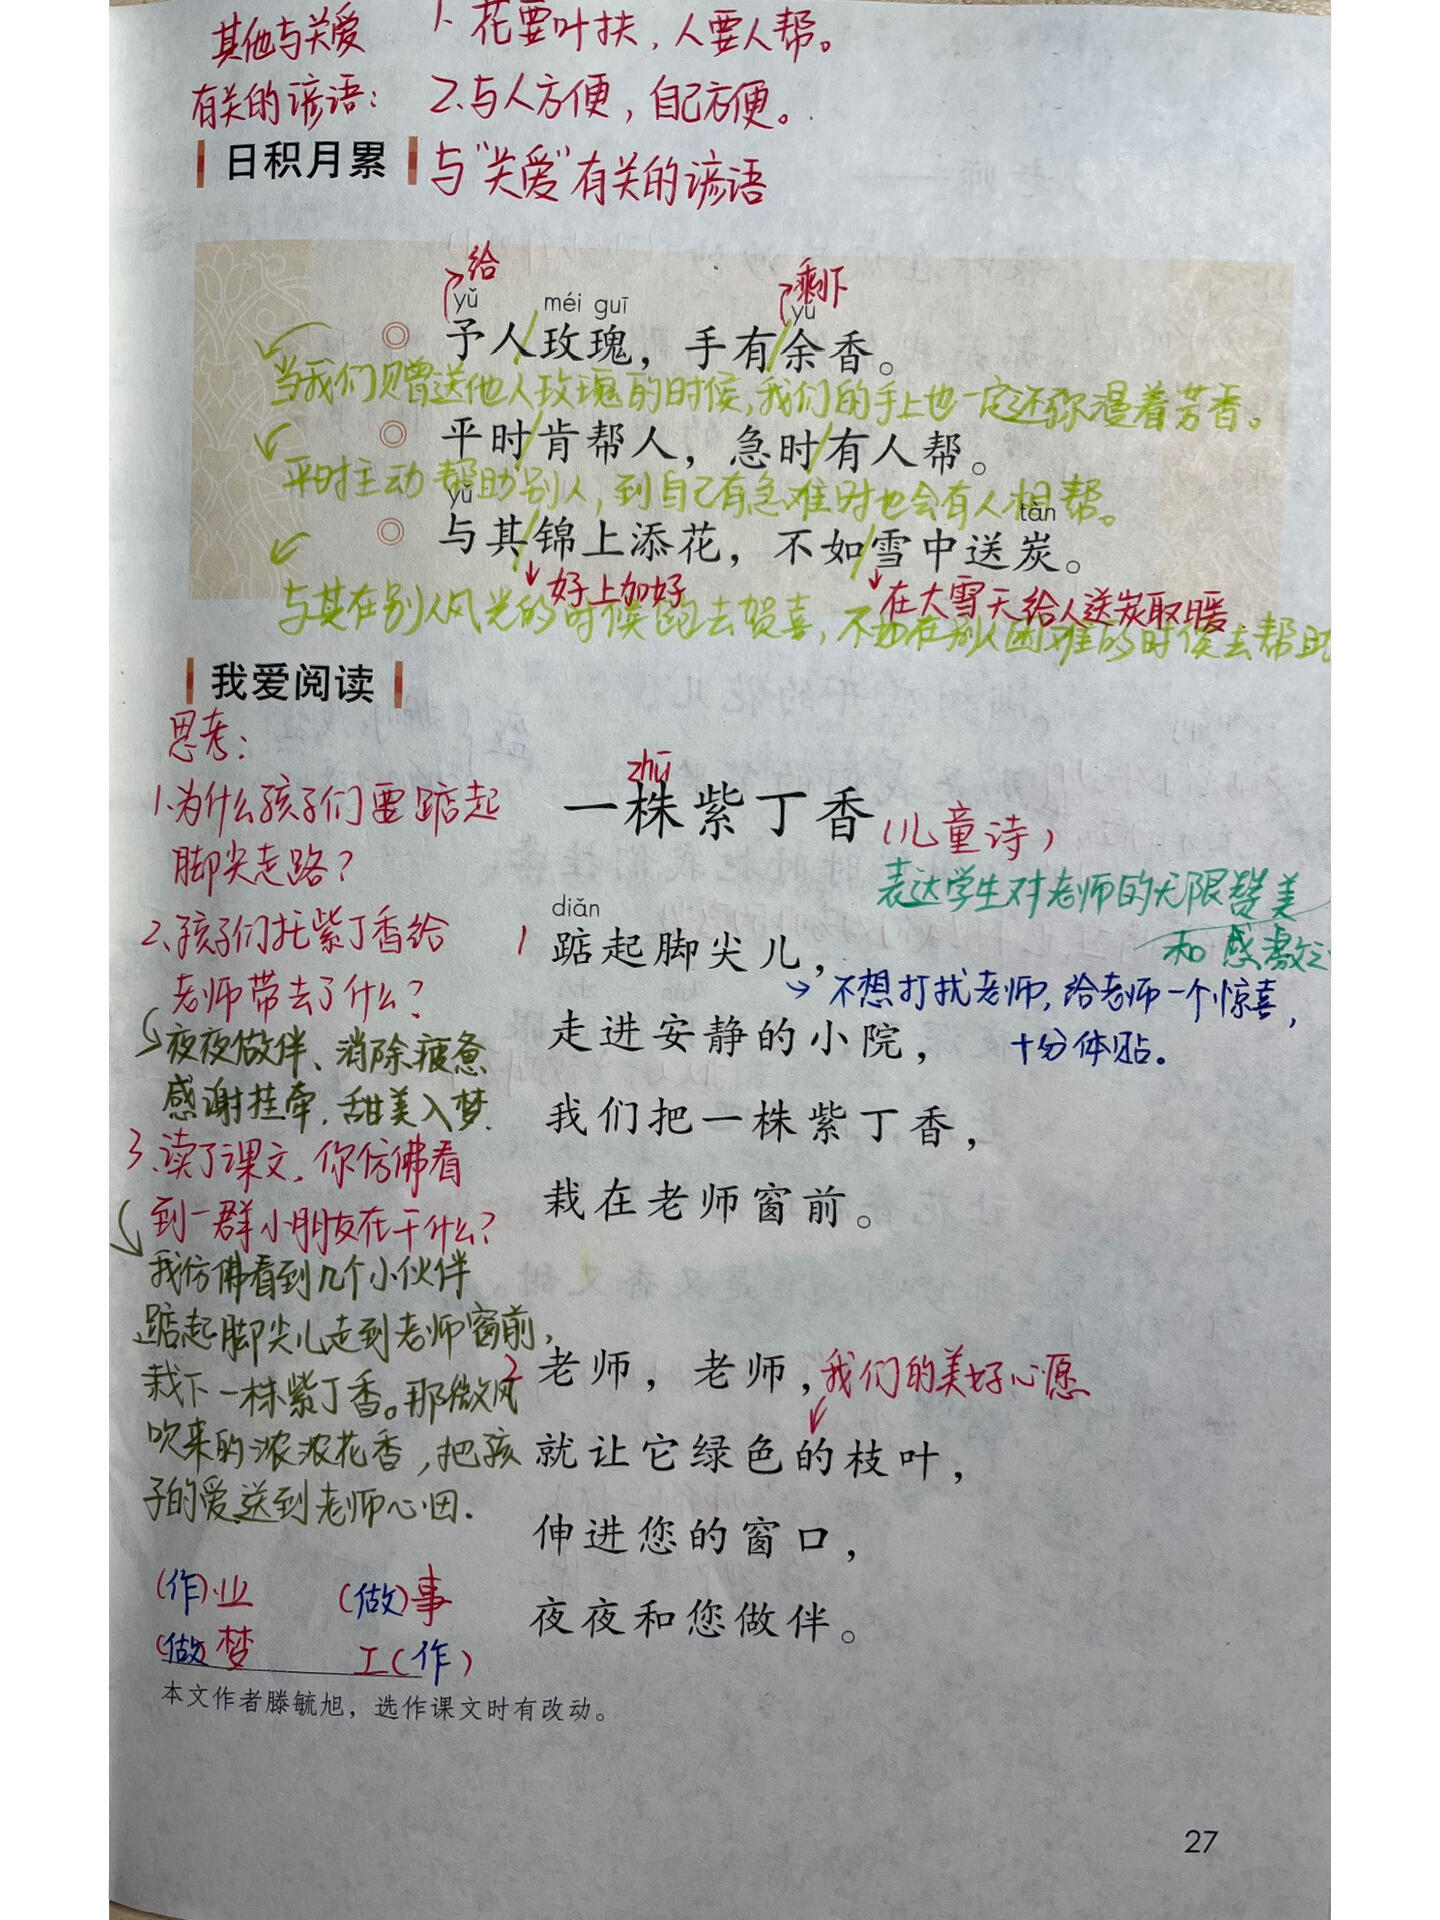 其他与关爱
有关的谚语：
1.花要叶扶，人要人帮。
2.与人方便，自己方便。
日积月累
与“关爱”有关的谚语
给
剩下
yǔ méi guī yú
予人玫瑰，手有余香。
当我们赠送他人玫瑰的时候，我们的手上也一定还弥漫着芳香。
平时肯帮人，急时有人帮。
平时主动帮助别人，到自己有急难时也会有人相帮。
yǔ tàn
与其锦上添花，不如雪中送炭。
好上加好
在大雪天给人送炭取暖
与其在别人风光的时候跑去贺喜，不如在别人困难的时候去帮助
我爱阅读
思考：
1.为什么孩子们要踮起
脚尖走路？
2.孩子们托紫丁香给
老师带去了什么？
夜夜做伴、消除疲惫
感谢挂牵，甜美入梦.
3.读了课文，你仿佛看
到一群小朋友在干什么？
我仿佛看到几个小伙伴
踮起脚尖儿走到老师窗前，
栽下一株紫丁香。那微风
吹来的浓浓花香，把孩
子的爱送到老师心田.
(作)业 (做)事
(做)梦 工(作)
zhū
一株紫丁香
(儿童诗)
表达学生对老师的无限赞美
和感激之
diǎn
1 踮起脚尖儿，
不想打扰老师，给老师一个惊喜，
十分体贴。
走进安静的小院，
我们把一株紫丁香，
栽在老师窗前。
2 老师，老师，
我们的美好心愿
就让它绿色的枝叶，
伸进您的窗口，
夜夜和您做伴。
本文作者滕毓旭，选作课文时有改动。
27